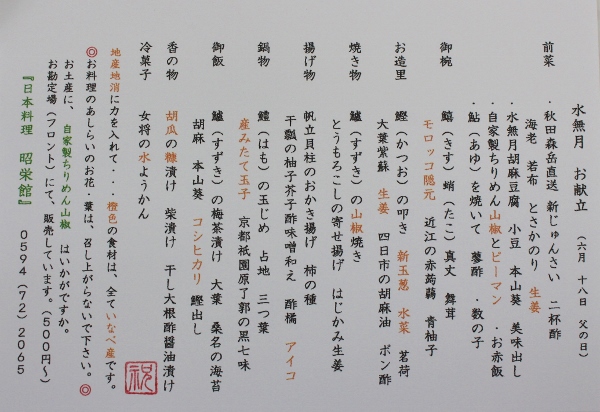 水無月 お献立 (六月 十八日 父の日)
前菜 ・秋田森岳直送 新じゅんさい 二杯酢
海老 若布 とさかのり 生姜
・水無月胡麻豆腐 小豆 本山葵 美味出し
・自家製ちりめん山椒とピーマン ・お赤飯
・鮎(あゆ)を焼いて 蓼酢 ・数の子
御椀 鱚(きす)蛸(たこ)真丈 舞茸
モロッコ隠元 近江の赤蒟蒻 青柚子
お造里 鰹(かつお)の叩き 新玉葱 水菜 茗荷
大葉紫蘇 生姜 四日市の胡麻油 ポン酢
焼き物 鱸(すずき)の山椒焼き
とうもろこしの寄せ揚げ はじかみ生姜
揚げ物 帆立貝柱のおかき揚げ 柿の種
干瓢の柚子芥子酢味噌和え 酢橘 アイコ
鍋物 鱧(はも)の玉じめ 占地 三つ葉
産みたて玉子 京都祇園原了郭の黒七味
御飯 鱸(すずき)の梅茶漬け 大葉 桑名の海苔
胡麻 本山葵 コシヒカリ 鰹出し
香の物 胡瓜の糠漬け 柴漬け 干し大根酢醤油漬け
冷菓子 女将の水ようかん
祝
地産地消に力を入れて・・橙色の食材は、全ていなべ産です。
◎お料理のあしらいのお花・葉は、召し上がらないで下さい。◎
お土産に、自家製ちりめん山椒 はいかがですか。
お勘定場(フロント)にて、販売しています。(500円〜)
『日本料理 昭栄館』 0594(72)2065